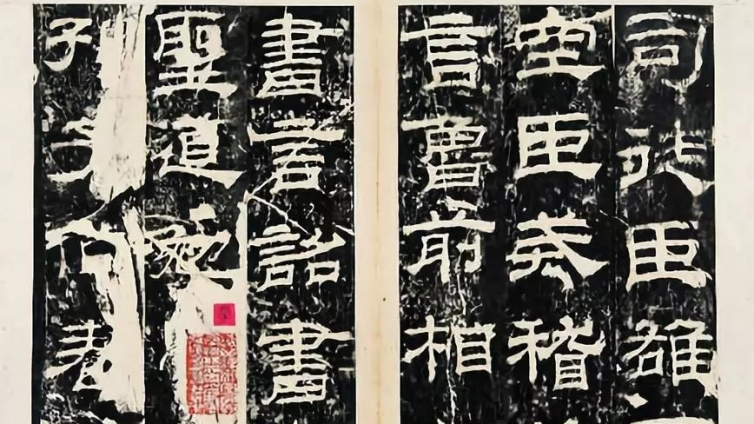 司徒臣雄
空臣戒稽
言魯前相
書言詔書
聖道勉
子